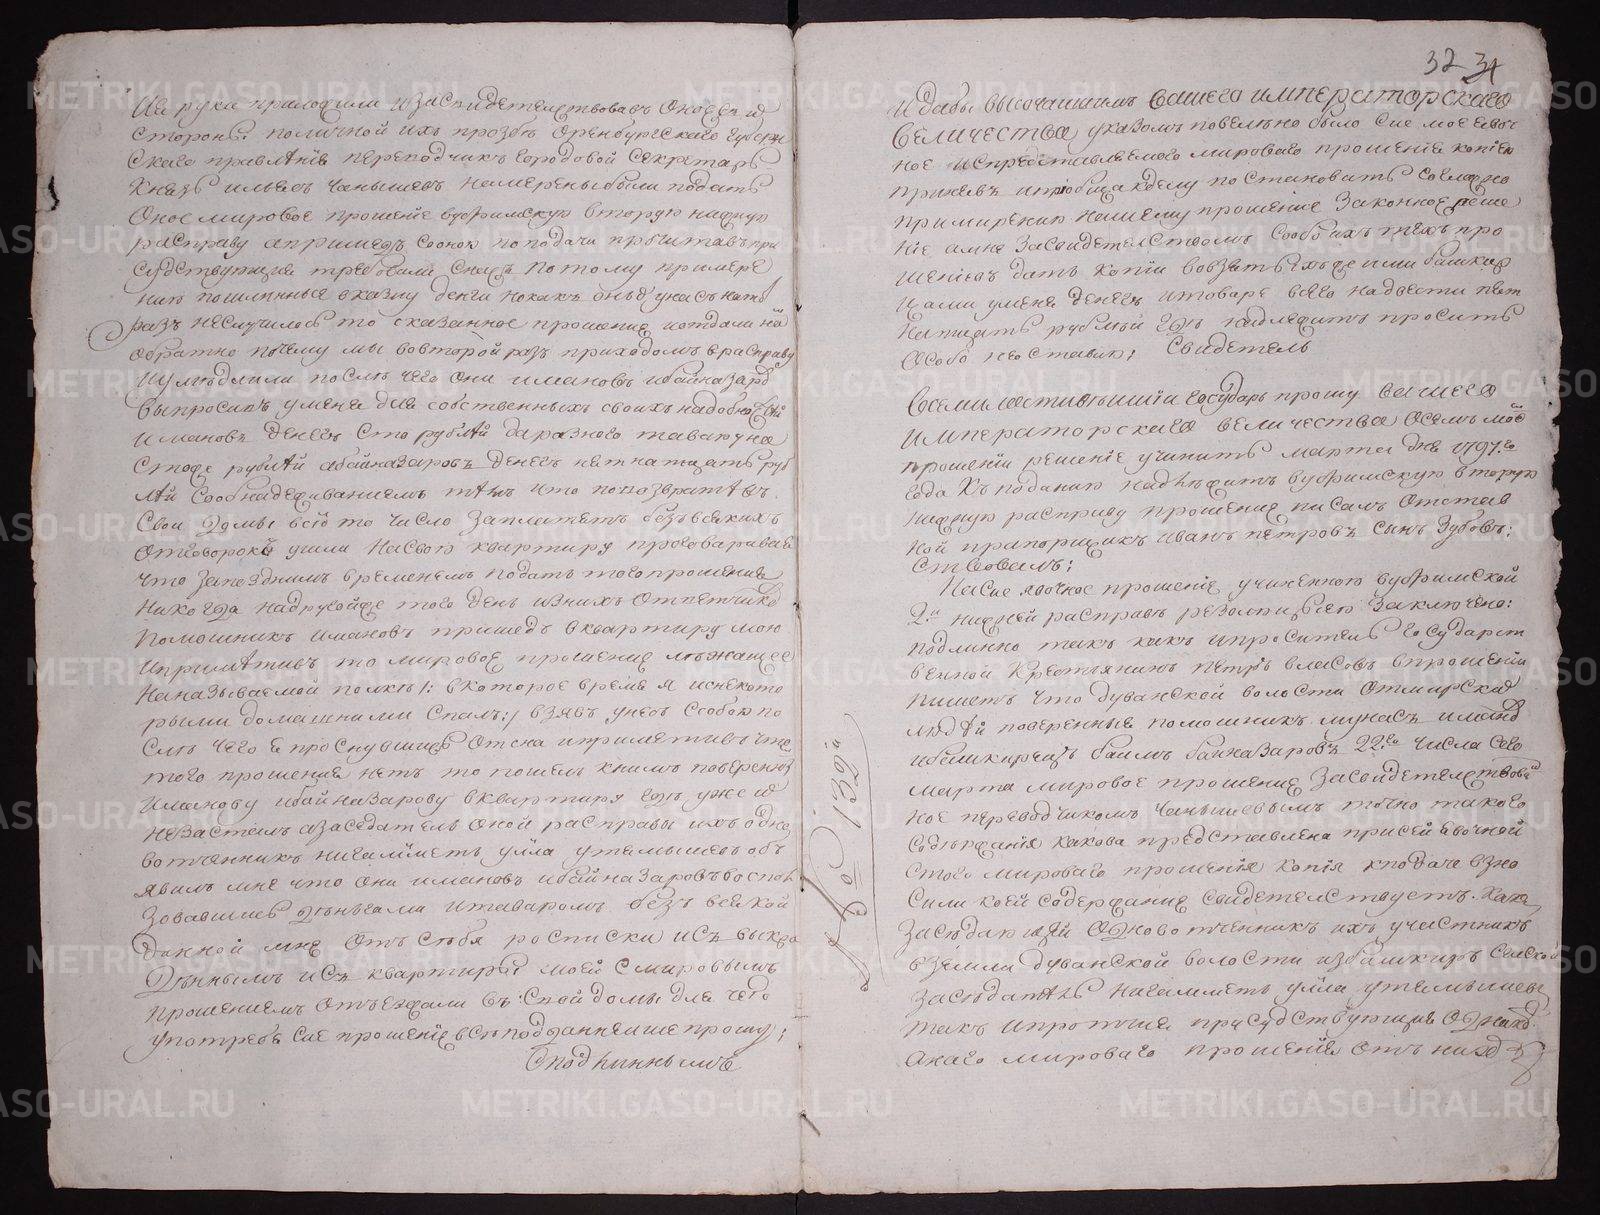 Ща руки приложили и засвидетельствовавъ оное съ
стороны поличной ихъ прозбѣ оренбургскаго губерн
скаго правлѣнiя переводчикъ городовой секретарь
Князь ильясъ чанышевъ намерены были подать
Оное мировое прошенiе вуфимскую вторую нижную
расправу апришедъ соонои по подачи прочитавъ при
судствующие требовали снасъ потому примере
нию пошлинные вказну денги
разъ неслучилось то сказанное прошение отдали
обратно почему мы вовторой разъ приходомъ врасправу
после чего они имановъ ибайназаровъ
выпросивъ уменя для собственныхъ своихъ надобностей
имановъ денегъ сто рублѣй даразного товару на
стоже рублѣй абайназаровъ денегъ пятнатцать руб
лѣй сообнадеживаниемъ тѣмъ что повозвратѣ въ
свои домы всiо то число заплатятъ безъ всякихъ
отговорокъ ушли насвою квартиру проговаривая
что запозднымъ временемъ подать того прошения
некогда надругойже того день изнихъ
помошникъ имановъ пришедъ вквартиру мою
ипримѣтивъ то мировое прошение лѣжащее
на называемой полкѣ /: вкоторое время я иснекото
рыми домашними спалъ :/ взявъ унесъ ссобою по
слѣ чего я проснувшись отсна иприметивъ что
того прошения нетъ то пошелъ книмъ повереннымъ
Иманову ибайназарову вквартиру где уже и
незасталъ азаседатель оной расправы ихъ одно
вотченникъ нигаметь улла утемышевъ объ
явилъ мне что они имановъ ибайназаровъ воспол
зовавшись дѣньгами итаваромъ безъ всякой
данной мне отъ себя росписки исъ выкра
дѣннымъ исъ квартиры моей смировымъ
прошениемъ отъезжали въ свои домы для чего
употребя сие прошенiе всѣподданнейше прошу;
Сподлиннымъ
32 31
И дабы высочайшимъ вашего императорскаго
величества указомъ повелѣно было сие мое явоч
ное испредставляемого мироваго прошенiя копiею
принявъ постановить согласно
примирению нашему прошение законное реше
нiе амне засвидетелствомъ сообоихъ техъ про
шениевъ дать копiи вовзятыхъже ими башкир
цами уменя денегъ итоваре всего надвести пят
натцать рублѣй где надлежитъ просить
особо неоставлю; Свидетель
Всемилостивѣйшiй государь прошу вашего
императорскаго величества осемъ моемъ
прошенiи решенiе учинить марта дня 1797го
года Къ поданию надлѣжитъ вуфимскую вторую
нижную расправу прошение писалъ отстав
ной прапорщикъ иванъ петровъ сынъ зубовъ;
Ствовалъ;
Насие явочное прошенiе учиненною вуфимской
2й нижней расправе резолюциею заключено:
подлинно такъ какъ ипроситель государст
венной крестьянинъ петръ власовъ впрошенiи
пишетъ что дуванской волости отмирскихъ
людѣй поверенные помошникъ мунасъ имановъ
ибашкирецъ баимъ байназаровъ 22го числа сего
марта мировое прошение засвидетелствован
ное переводчикомъ чанышевымъ точно такого
содержания какова представлена присей явочной
стого мироваго прошения копiя кподаче взно
сили коей содержание свидетелствуетъ. Какъ
одновотченникъ ихъ участникъ
вземли дуванской волости избашкиръ сельской
заседатель нигаметь улла утемышевъ
такъ ипротчие присудствующие
анаго мироваго прошения отъ нихъ
№ 132й